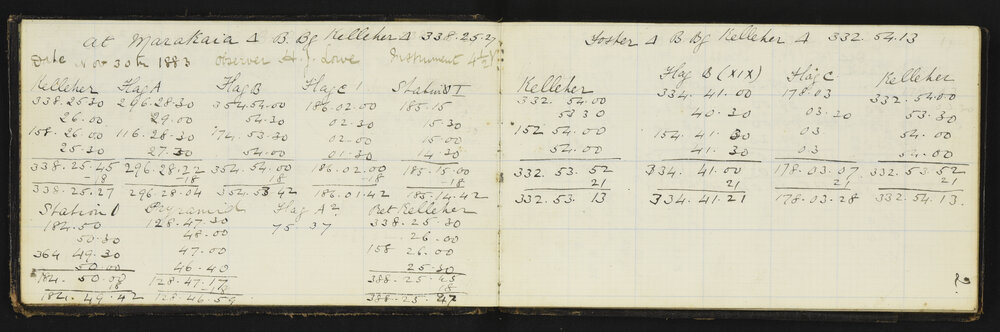 At Marakaia Δ B. Bg Kelleher Δ 338.25.27
Date Nov 30th 1883 Observer H. J. Lowe Instrument
Kelleher Flag A Flag B Flag C 1 Station I
338.25.30 296.28.30 354.54.00 186.02.00 185.15
26.00 29.00 54.30 02.30 15.30
158.26.00 116.28.30 174.53.30 02.00 15.00
25.30 27.30 54.00 01.30 14.30
338.25.45 296.28.22 354.54.00 186.02.00 185.15.00
-18 -18 18 18 -18
338.25.27 296.28.04 354.53.42 186.01.42 185.14.42
Station 1 Pyramid Flag A2 Ret Kelleher
184.50 128.47.30 75 37 338.25.30
50.30 48.00 26.00
364 49.30 47.00 158 26.00
50.00 46.40 25.30
184.50.00 128.47.17 338.25.45
18 18 18
184.49.42 128.46.59 338.25.27
Foster Δ B Bg Kelleher Δ 332.54.13
Kelleher Flag B (XIX) Flag C Kelleher
332.54.00 334.41.00 178.03 332.54.00
53 30 40.30 03.30 53.30
152 54.00 154.41.30 03 54.00
54.00 41.30 03 54.00
332.53.52 334.41.00 178.03.07 332.53.52
21 21 21 21
332.53.13 334.41.21 178.03.28 332.54.13.
2